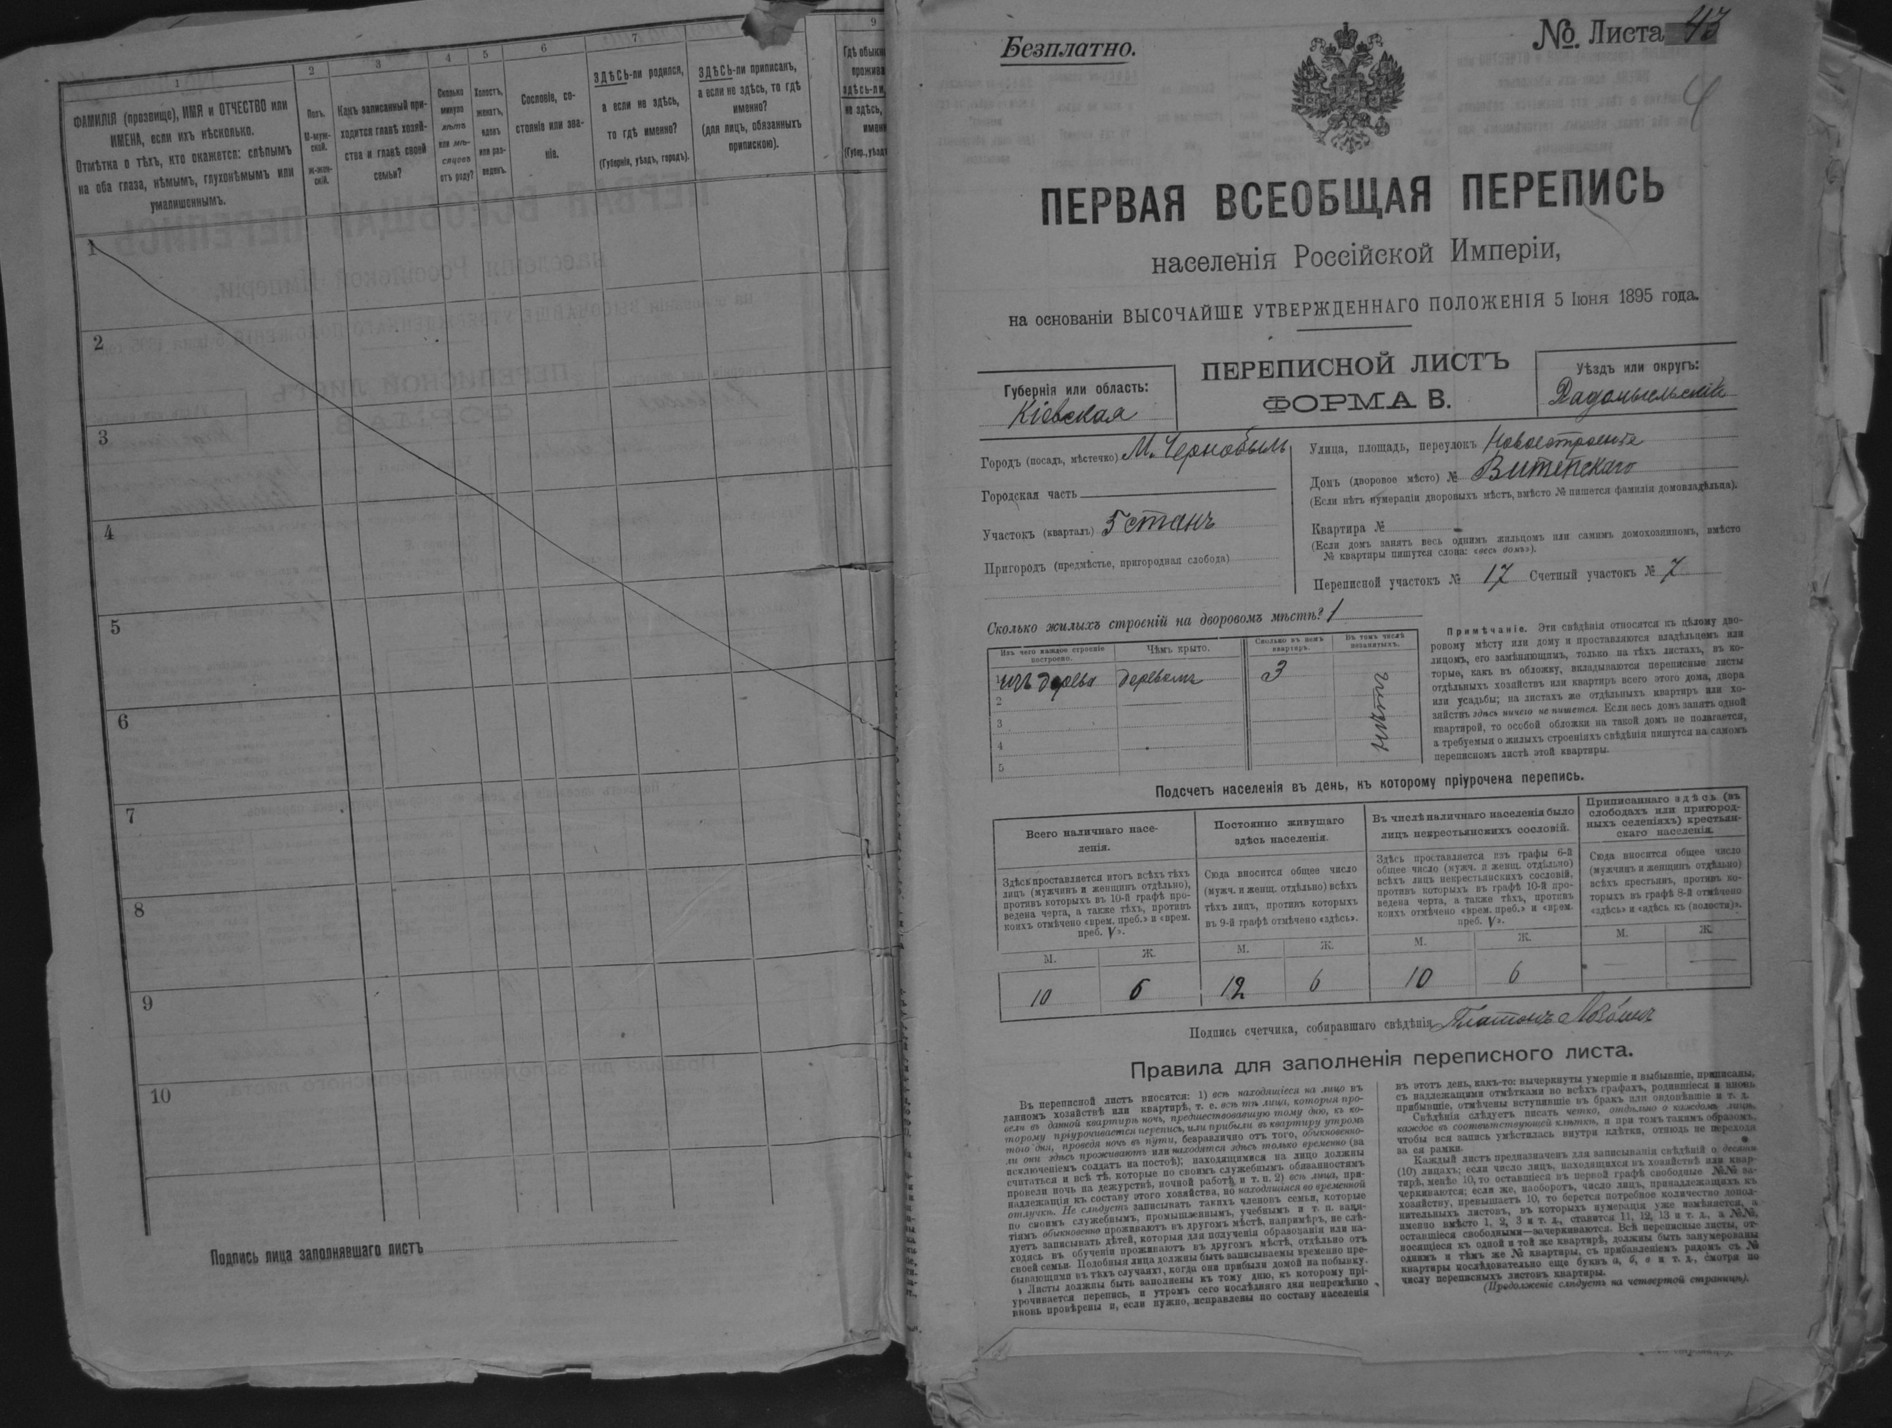 1
ФАМИЛІЯ (прозвище), ИМЯ и ОТЧЕСТВО или
ИМЕНА, если ихъ нѣсколько.
Отмѣтка о тѣхъ, кто окажется: слѣпымъ
на оба глаза, нѣмымъ, глухонѣмымъ или
умалишеннымъ.
2
Полъ.
М-муж-
ской.
ж-жен-
скій.
3
Какъ записанный при-
ходится главѣ хозяй-
ства и главѣ своей
семьи?
4
Сколько
минуло
лѣтъ
или мѣ-
сяцевъ
отъ роду?
5
Холостъ,
женатъ,
вдовъ
или раз-
веденъ.
6
Сословіе, со-
стояніе или зва-
ніе.
7
ЗДѢСЬ-ли родился,
а если не здѣсь,
то гдѣ именно?
(Губернія, уѣздъ, городъ).
ЗДѢСЬ-ли приписанъ,
а если не здѣсь, то гдѣ
именно?
(для лицъ, обязанныхъ
припискою).
9
1
2
3
4
5
6
7
8
9
10
Подпись лица заполнявшаго листъ
Безплатно.
№ Листа 43
ПЕРВАЯ ВСЕОБЩАЯ ПЕРЕПИСЬ
населенія Россійской Имперіи,
на основаніи ВЫСОЧАЙШЕ УТВЕРЖДЕННАГО ПОЛОЖЕНІЯ 5 Іюня 1895 года.
Губернія или область:
Кіевская
ПЕРЕПИСНОЙ ЛИСТЪ
ФОРМА В.
Уѣздъ или округъ:
Радомысльскій
Городъ (посадъ, мѣстечко) М. Чернобыль
Городская часть
Участокъ (кварталъ) 5 станъ
Пригородъ (предмѣстье, пригородная слобода)
Улица, площадь, переулокъ Новоестроенія
Домъ (дворовое мѣсто) № Витепскаго
(Если нѣтъ нумераціи дворовыхъ мѣстъ, вмѣсто № пишется фамилія домовладѣльца).
Квартира №
(Если домъ занятъ весь однимъ жильцомъ или самимъ домохозяиномъ, вмѣсто
№ квартиры пишутся слова: «весь домъ»).
Переписной участокъ № 17 Счетный участокъ № 7
Сколько жилыхъ строеній на дворовомъ мѣстѣ? 1
Изъ чего каждое строеніе
построено.
Чѣмъ крыто.
Сколько въ немъ
квартиръ.
Въ томъ числѣ
незанятыхъ.
изъ дерева деревомъ 3 нѣтъ
2
3
4
5
Примѣчаніе. Эти свѣдѣнія относятся къ цѣлому дво-
ровому мѣсту или дому и проставляются владѣльцемъ или
лицомъ, его замѣняющимъ, только на тѣхъ листахъ, въ ко-
торые, какъ въ обложку, вкладываются переписные листы
отдѣльныхъ хозяйствъ или квартиръ всего этого дома, двора
или усадьбы; на листахъ же отдѣльныхъ квартиръ или хо-
зяйствъ здѣсь ничего не пишется. Если весь домъ занятъ одной
квартирой, то особой обложки на такой домъ не полагается,
а требуемыя о жилыхъ строеніяхъ свѣдѣнія пишутся на самомъ
переписномъ листѣ этой квартиры.
Подсчетъ населенія въ день, къ которому пріурочена перепись.
Всего наличнаго насе-
ленія.
Здѣсь проставляется итогъ всѣхъ тѣхъ
лицъ (мужчинъ и женщинъ отдѣльно),
противъ которыхъ въ 10-й графѣ про-
ведена черта, а также тѣхъ, противъ
коихъ отмѣчено «врем. преб.» и «врем.
преб. V».
Постоянно живущаго
здѣсь населенія.
Сюда вносится общее число
(мужч. и женщ. отдѣльно) всѣхъ
тѣхъ лицъ, противъ которыхъ
въ 9-й графѣ отмѣчено «здѣсь».
Въ числѣ наличнаго населенія было
лицъ некрестьянскихъ сословій.
Здѣсь проставляется изъ графы 6-й
общее число (мужч. и женщ. отдѣльно)
всѣхъ лицъ некрестьянскихъ сословій,
противъ которыхъ въ графѣ 10-й про-
ведена черта, а также тѣхъ, противъ
коихъ отмѣчено «врем. преб.» и «врем.
преб. V».
Приписаннаго здѣсь (въ
слободахъ или пригород-
ныхъ селеніяхъ) крестьян-
скаго населенія.
Сюда вносится общее число
(мужчинъ и женщинъ отдѣльно)
всѣхъ крестьянъ, противъ ко-
торыхъ въ графѣ 8-й отмѣчено
«здѣсь» и «здѣсь къ (волости)».
М. Ж. М. Ж. М. Ж. М. Ж.
10 6 12 6 10 6 — —
Подпись счетчика, собиравшаго свѣдѣнія Платонъ
Правила для заполненія переписного листа.
Въ переписной листъ вносятся: 1) всѣ находящіеся на лицо въ
данномъ хозяйствѣ или квартирѣ, т. е. всѣ тѣ лица, которыя про-
вели въ данной квартирѣ ночь, предшествовавшую тому дню, къ ко-
торому пріурочивается перепись, или прибыли въ квартиру утромъ
того дня, проведя ночь въ пути, безразлично отъ того, обыкновенно-
ли они здѣсь проживаютъ или находятся здѣсь только временно (за
исключеніемъ солдатъ на постоѣ); находящимися на лицо должны
считаться и всѣ тѣ, которые по своимъ служебнымъ обязанностямъ
провели ночь на дежурствѣ, ночной работѣ и т. п. 2) всѣ лица, при-
надлежащія къ составу этого хозяйства, но находящіяся во временной
отлучкѣ. Не слѣдуетъ записывать такихъ членовъ семьи, которые
по своимъ служебнымъ, промышленнымъ, учебнымъ и т. п. заня-
тіямъ обыкновенно проживаютъ въ другомъ мѣстѣ, напримѣръ, не слѣ-
дуетъ записывать дѣтей, которыя для полученія образованія или на-
ходясь въ обученіи проживаютъ въ другомъ мѣстѣ, отдѣльно отъ
своей семьи. Подобныя лица должны быть записываемы временно пре-
бывающими въ тѣхъ случаяхъ, когда они прибыли домой на побывку.
Листы должны быть заполнены къ тому дню, къ которому прі-
урочивается перепись, и утромъ сего послѣдняго дня непремѣнно
вновь провѣрены и, если нужно, исправлены по составу населенія
въ этотъ день, какъ-то: вычеркнуты умершіе и выбывшіе, приписаны,
съ надлежащими отмѣтками во всѣхъ графахъ, родившіеся и вновь
прибывшіе, отмѣчены вступившіе въ бракъ или овдовѣвшіе и т. д.
Свѣдѣнія слѣдуетъ писать четко, отдѣльно о каждомъ лицѣ,
каждое въ соотвѣтствующей клѣткѣ, и при томъ такимъ образомъ,
чтобы вся запись умѣстилась внутри клѣтки, отнюдь не переходя
за ея рамки.
Каждый листъ предназначенъ для записыванія свѣдѣній о десяти
(10) лицахъ; если число лицъ, находящихся въ хозяйствѣ или квар-
тирѣ, менѣе 10, то оставшіеся въ первой графѣ свободные №№ за-
черкиваются; если же, наоборотъ, число лицъ, принадлежащихъ къ
хозяйству, превышаетъ 10, то берется потребное количество допол-
нительныхъ листовъ, въ которыхъ нумерація уже измѣняется, а
именно вмѣсто 1, 2, 3 и т. д., ставится 11, 12, 13 и т. д., а №№,
оставшіеся свободными—зачеркиваются. Всѣ переписные листы, от-
носящіеся къ одной и той же квартирѣ, должны быть занумерованы
однимъ и тѣмъ же № квартиры, съ прибавленіемъ рядомъ съ №
квартиры послѣдовательно еще буквъ а, б, в и т. д., смотря по
числу переписныхъ листовъ квартиры.
(Продолженіе слѣдуетъ на четвертой страницѣ).